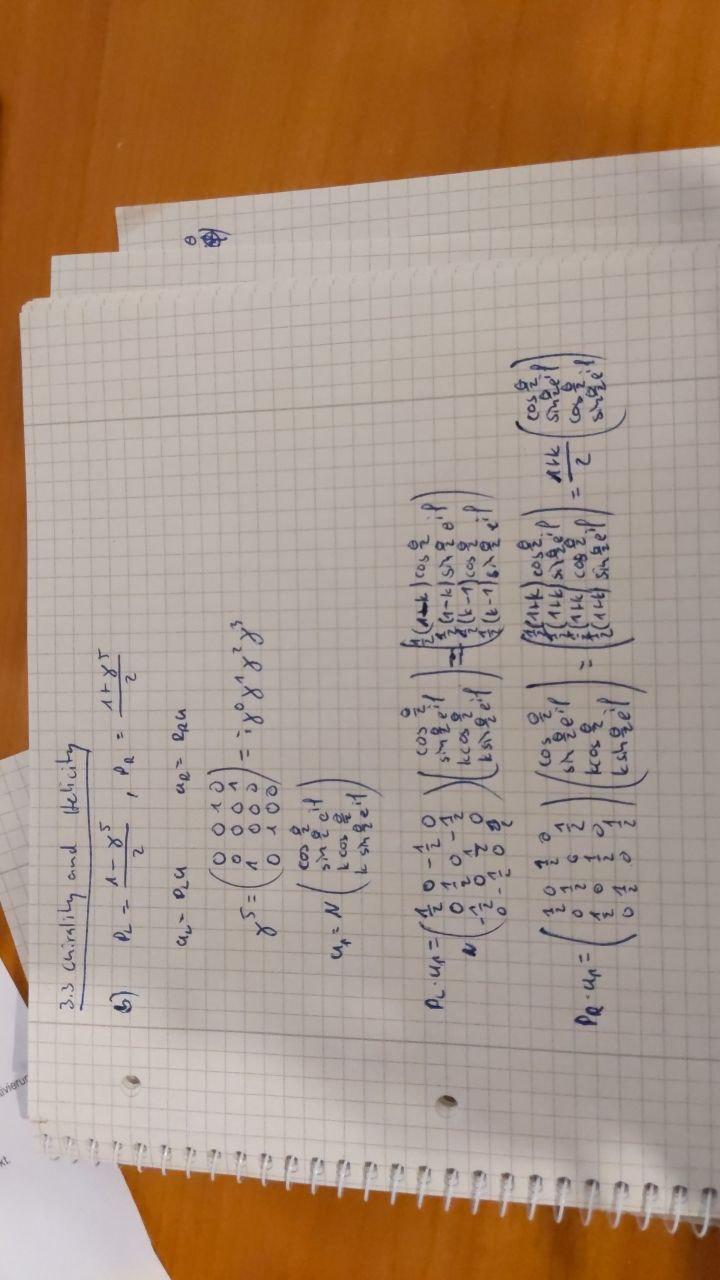 3.3 Chirality and Helicity
b) P_L = (1 - γ^5)/2 , P_R = (1 + γ^5)/2
u_L = P_L u   u_R = P_R u
γ^5 = (0 0 1 0; 0 0 0 1; 1 0 0 0; 0 1 0 0) = iγ^0 γ^1 γ^2 γ^3
u_↑ = N (cos θ/2; sin θ/2 e^{iφ}; k cos θ/2; k sin θ/2 e^{iφ})
P_L · u_↑ = (1/2 0 -1/2 0; 0 1/2 0 -1/2; -1/2 0 1/2 0; 0 -1/2 0 1/2) (cos θ/2; sin θ/2 e^{iφ}; k cos θ/2; k sin θ/2 e^{iφ}) = (1/2 (1-k) cos θ/2; 1/2 (1-k) sin θ/2 e^{iφ}; 1/2 (k-1) cos θ/2; 1/2 (k-1) sin θ/2 e^{iφ})
N
P_R · u_↑ = (1/2 0 1/2 0; 0 1/2 0 1/2; 1/2 0 1/2 0; 0 1/2 0 1/2) (cos θ/2; sin θ/2 e^{iφ}; k cos θ/2; k sin θ/2 e^{iφ}) = (1/2 (1+k) cos θ/2; 1/2 (1+k) sin θ/2 e^{iφ}; 1/2 (1+k) cos θ/2; 1/2 (1+k) sin θ/2 e^{iφ}) = (1+k)/2 (cos θ/2; sin θ/2 e^{iφ}; cos θ/2; sin θ/2 e^{iφ})